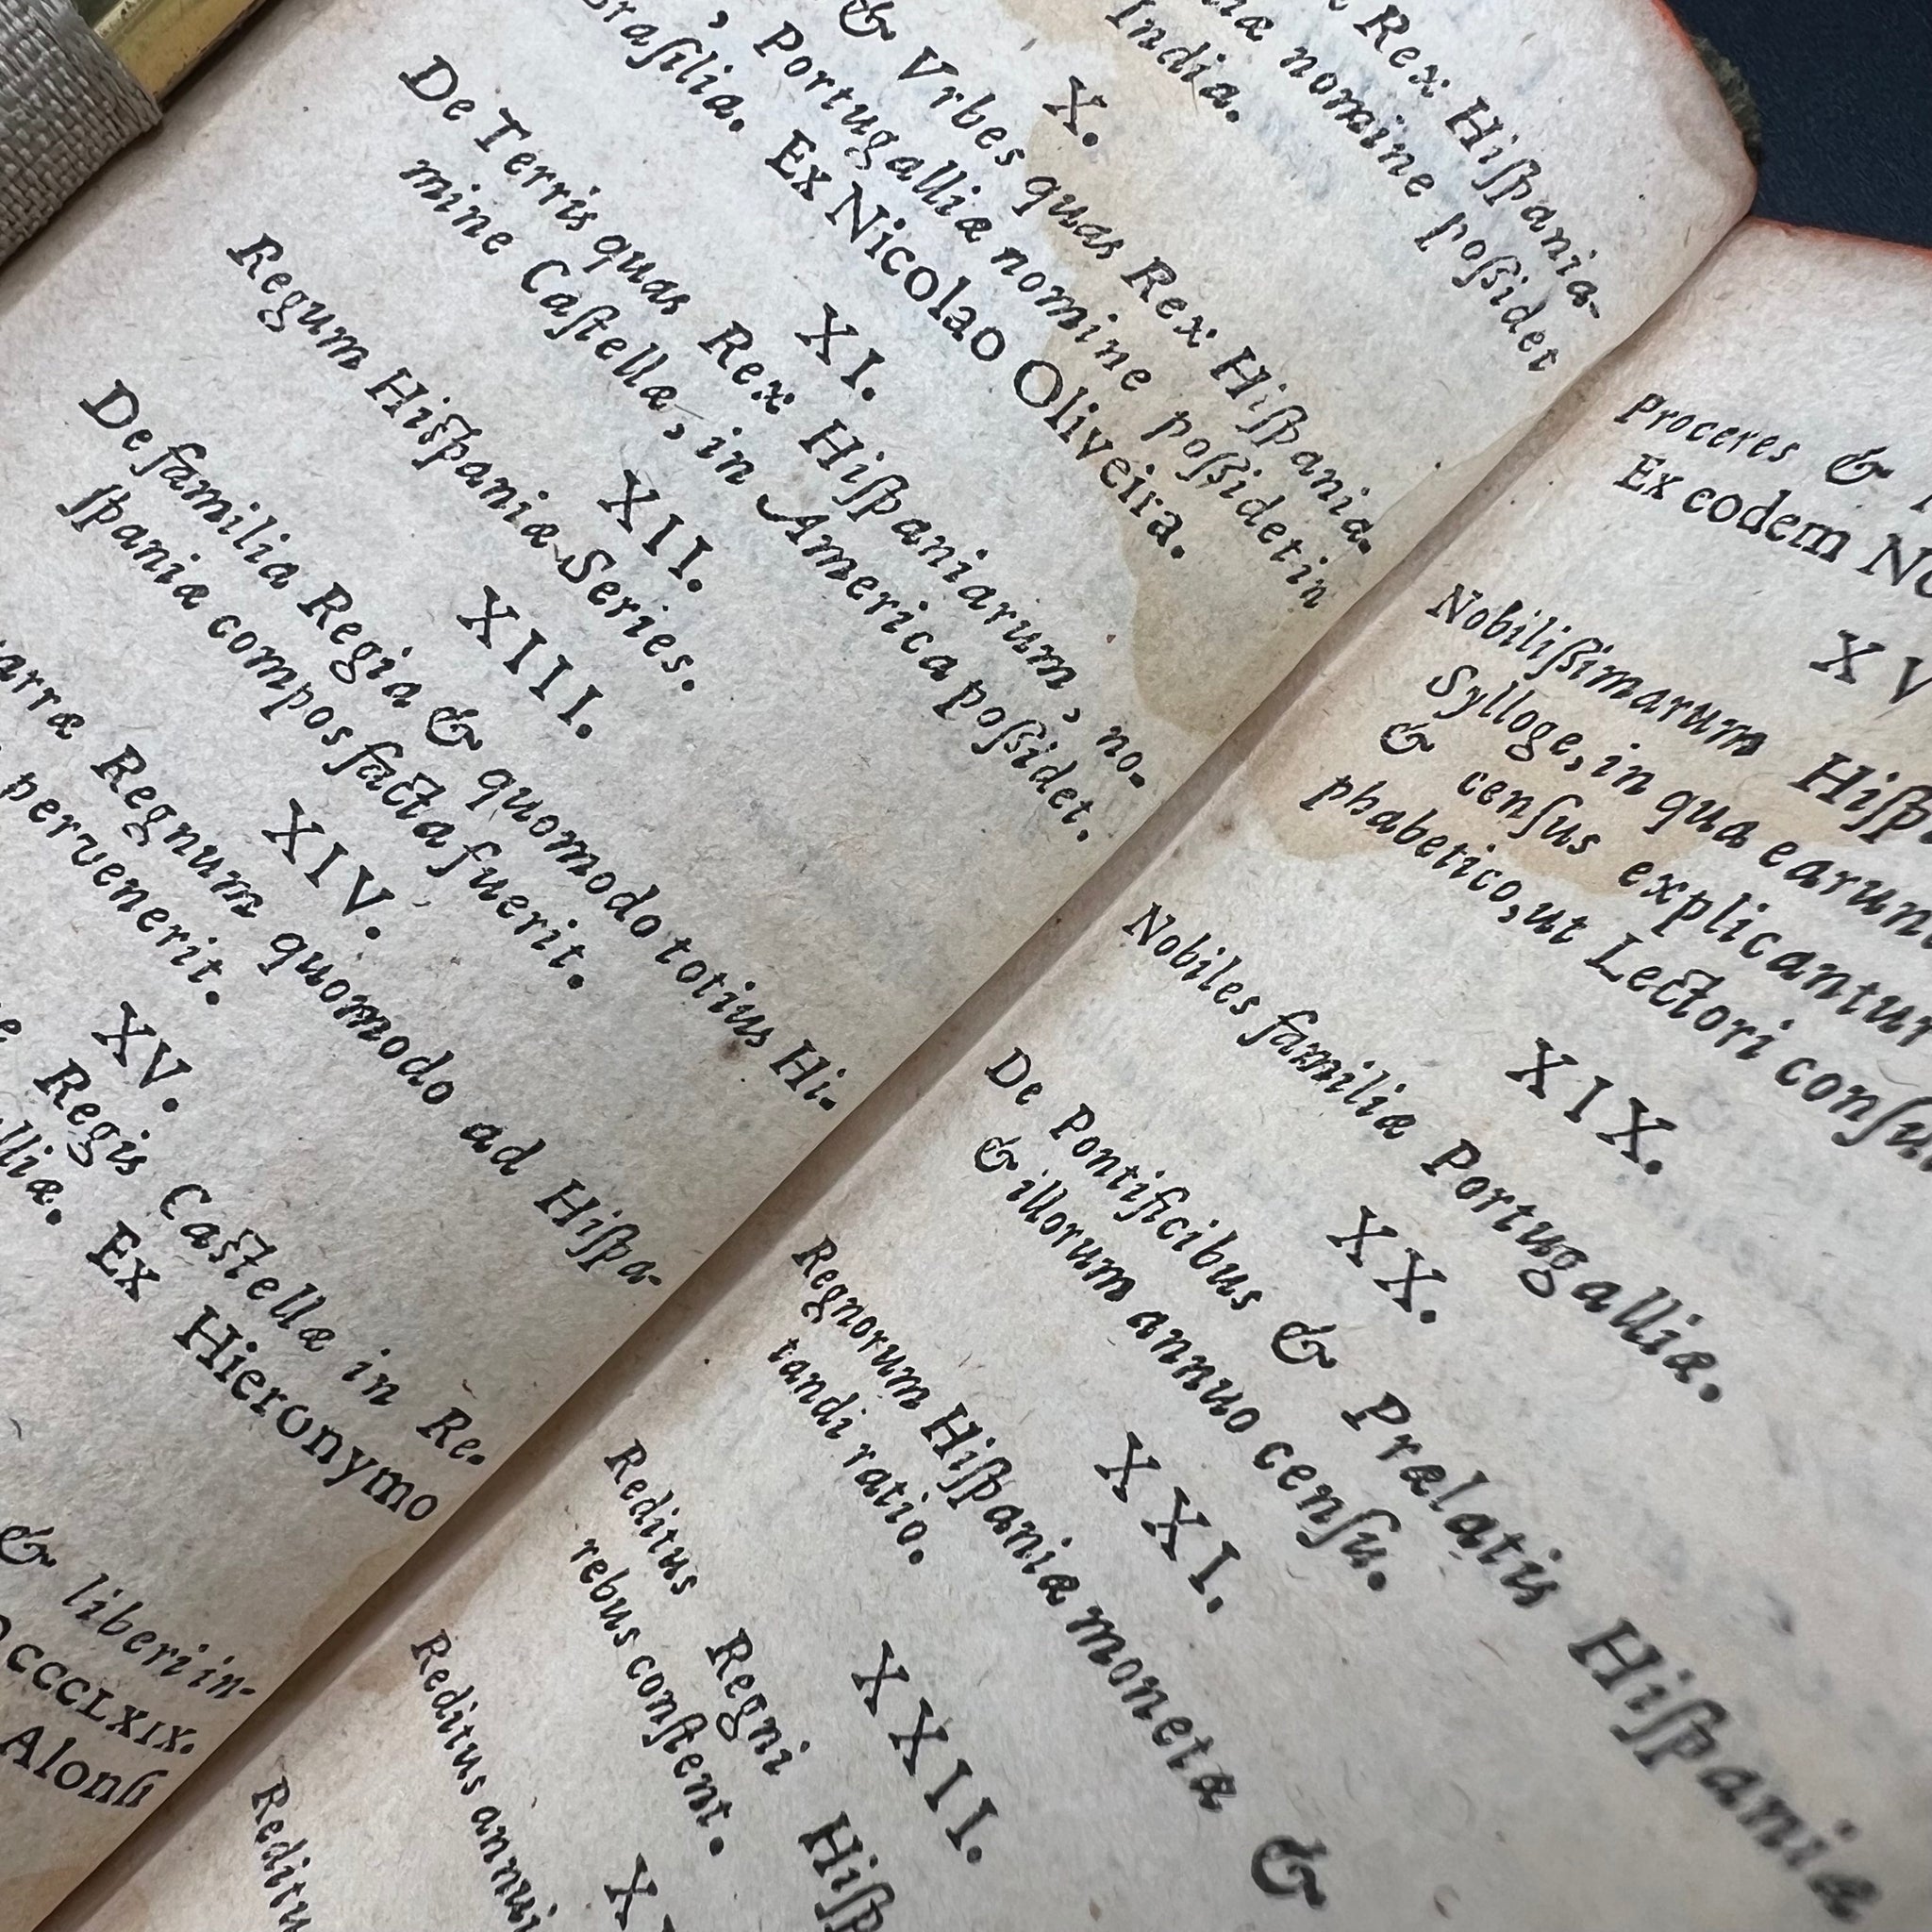 Rex Hiſpania-
nomine poßidet
India.
X.
& Vrbes quas Rex Hiſpania.
, Portugalliæ nomine poßidet in
Braſilia. Ex Nicolao Oliveira.
XI.
De Terris quas Rex Hiſpaniarum, no-
mine Caſtellæ, in America poßidet.
XII.
Regum Hiſpaniæ Series.
XIII.
De familia Regia & quomodo totius Hi-
ſpaniæ compos facta fuerit.
XIV.
Regnum quomodo ad Hiſpa-
pervenerit.
XV.
Regis Caſtellæ in Re-
Ex Hieronymo
& liberi in-
CCCLXIX.
Alonſi
Proceres &
Ex eodem
XV
Nobilißimarum Hiſp
Sylloge, in qua earum
& cenſus explicantur
phabetico, ut Lectori conſu
XIX.
Nobiles familiæ Portugalliæ.
XX.
De Pontificibus & Prælatis Hiſpaniæ
& illorum annuo cenſu.
XXI.
Regnorum Hiſpaniæ moneta &
tandi ratio.
XXII.
Reditus Regni Hiſp
rebus conſtent.
X
Reditus annui
Reditu